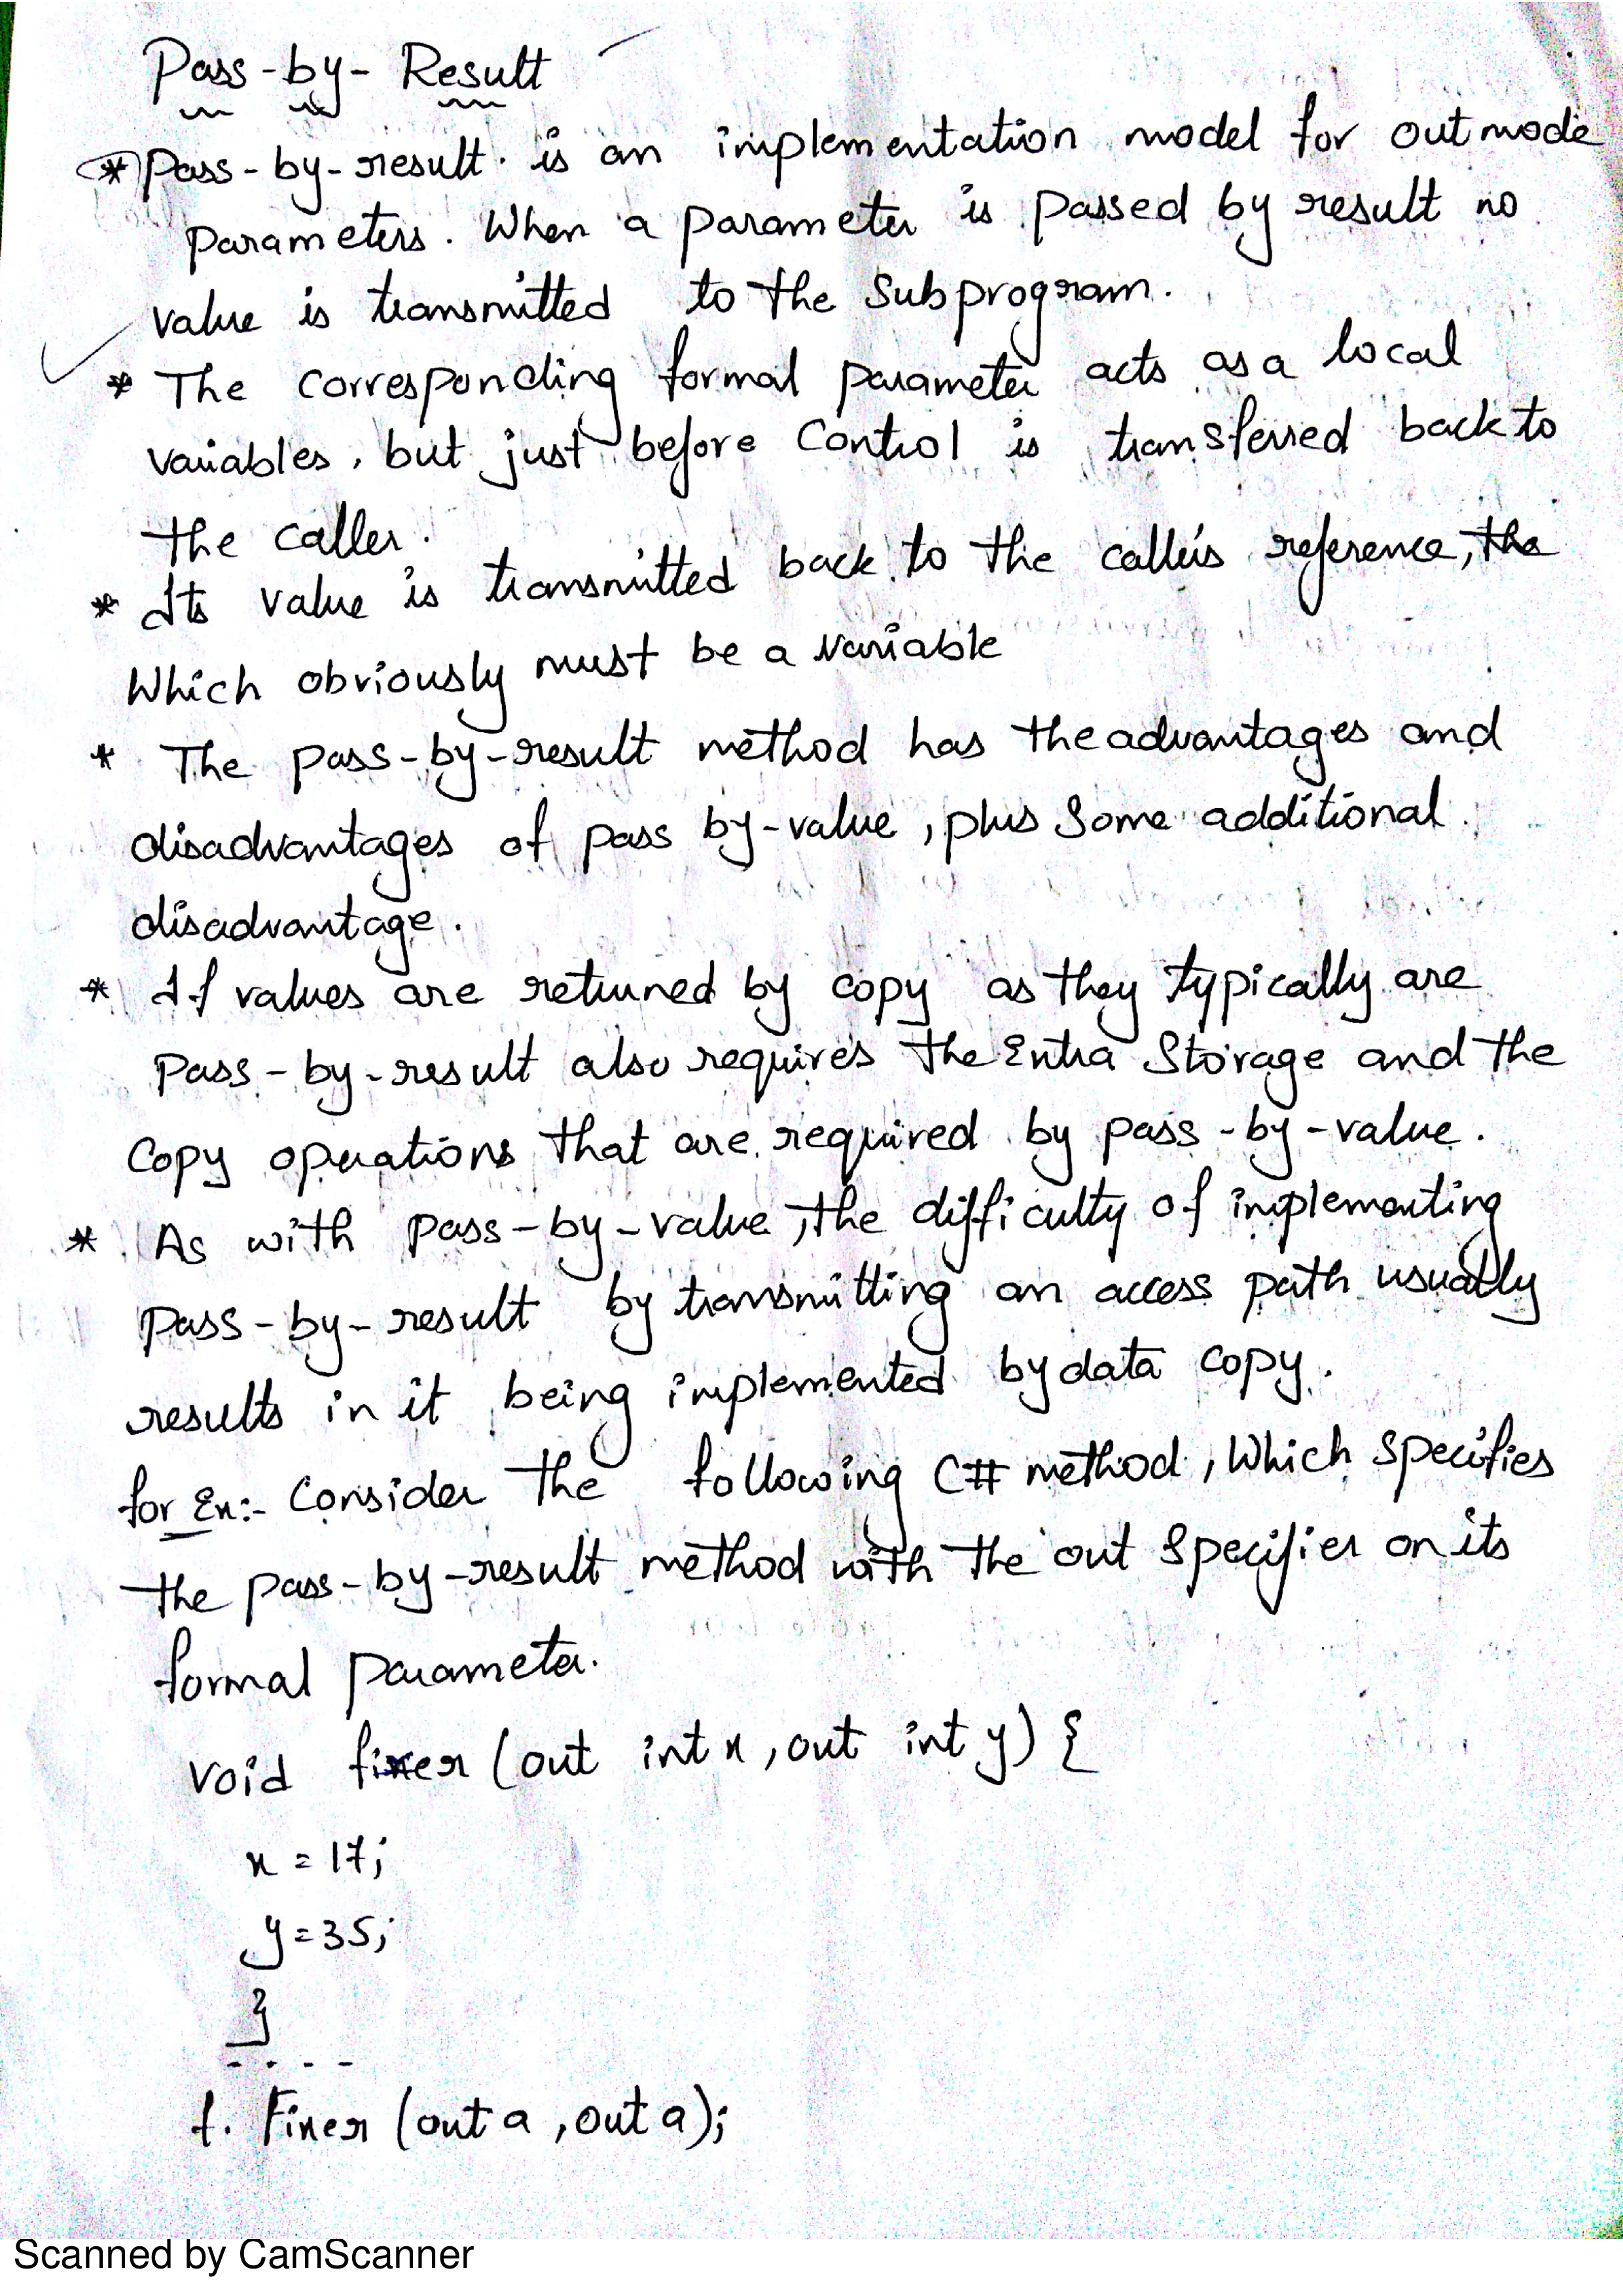 Pass-by-Result
* Pass-by-result is an implementation model for outmode
parameters. When a parameter is passed by result no
value is transmitted to the Subprogram.
* The corresponding formal parameter acts as a local
variables, but just before Control is transferred back to
the caller.
* Its value is transmitted back to the caller's reference, the
Which obviously must be a variable
* The pass-by-result method has the advantages and
disadvantages of pass by-value, plus Some additional
disadvantage.
* If values are returned by copy as they typically are
Pass-by-result also requires the Extra Storage and the
Copy operations that are required by pass-by-value.
* As with pass-by-value, the difficulty of implementing
pass-by-result by transmitting an access path usually
results in it being implemented by data copy.
for Ex:- Consider the following C# method, Which specifies
the pass-by-result method with the out specifier on its
formal parameter.
void fixer (out int x, out int y) {
x = 17;
y = 35;
}
- . . -
f. Fixer (out a, out a);
Scanned by CamScanner